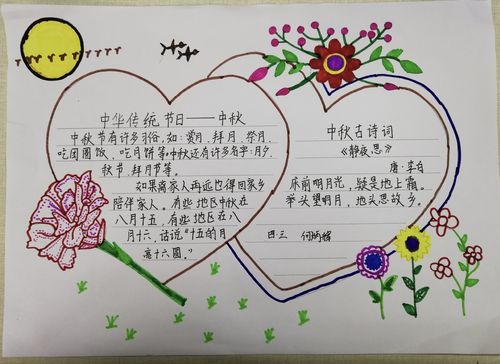 中华传统节日——中秋
中秋节有许多习俗,如:赏月、拜月、祭月、
吃团圆饭、吃月饼等。中秋还有许多名字:月夕、
秋节、拜月节等。
如果离家人再远也得回家乡
陪伴家人。有些地区中秋在
八月十五,有些地区在八
月十六,话说“十五的月
亮十六圆。”
中秋古诗词
《静夜思》
唐·李白
床前明月光,疑是地上霜。
举头望明月,地头思故乡。
四·三 何